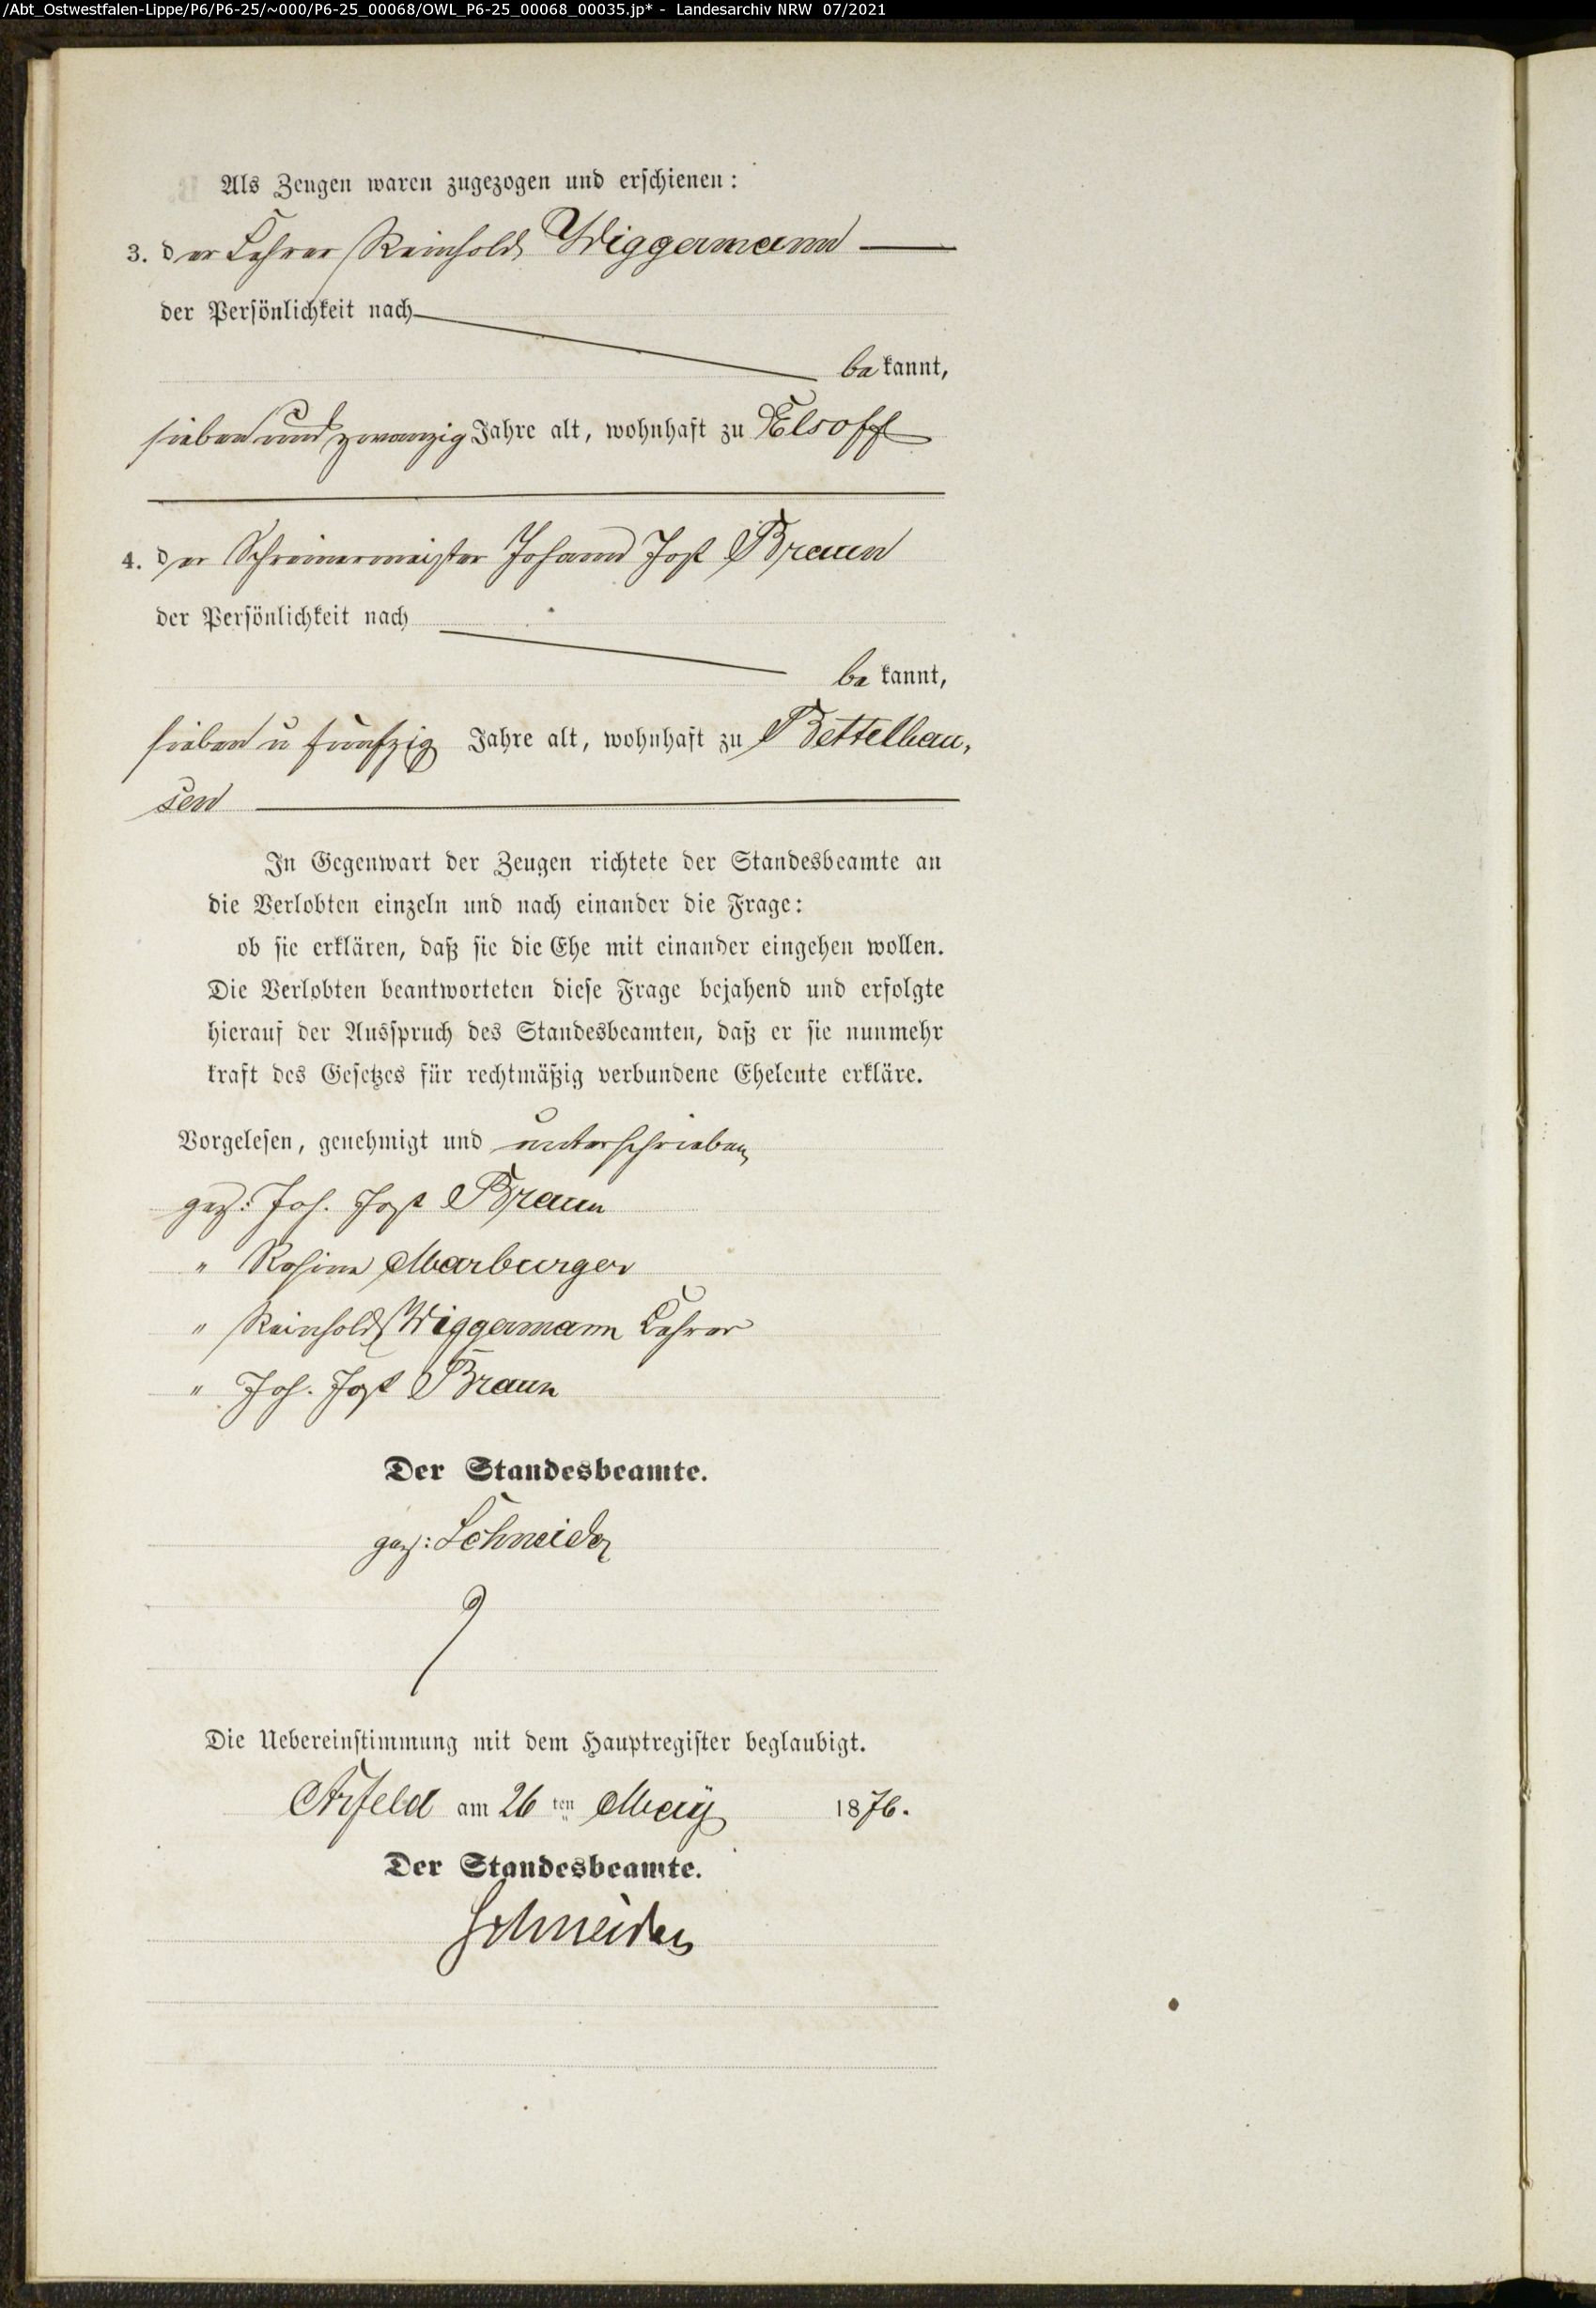 /Abt_Ostwestfalen-Lippe/P6/P6-25/~000/P6-25_00068/OWL_P6-25_00068_00035.jp* - Landesarchiv NRW 07/2021
Als Zeugen waren zugezogen und erschienen:
3. der Lehrer Reinhold Wiggermann
der Persönlichkeit nach
bekannt,
sieben und zwanzig Jahre alt, wohnhaft zu Elsoff
4. der Schreinermeister Johann Jost Braun
der Persönlichkeit nach
bekannt,
sieben u fünfzig Jahre alt, wohnhaft zu Bettelhau,
sen
In Gegenwart der Zeugen richtete der Standesbeamte an
die Verlobten einzeln und nach einander die Frage:
ob sie erklären, daß sie die Ehe mit einander eingehen wollen.
Die Verlobten beantworteten diese Frage bejahend und erfolgte
hierauf der Ausspruch des Standesbeamten, daß er sie nunmehr
kraft des Gesetzes für rechtmäßig verbundene Eheleute erkläre.
Vorgelesen, genehmigt und unterschrieben
gez: Joh. Jost Braun
" Rosina Marburger
" Reinhold Wiggermann Lehrer
" Joh. Jost Braun
Der Standesbeamte.
gez: Schneider
Die Uebereinstimmung mit dem Hauptregister beglaubigt.
Arfeld am 26 ten May 1876.
Der Standesbeamte.
Schneider